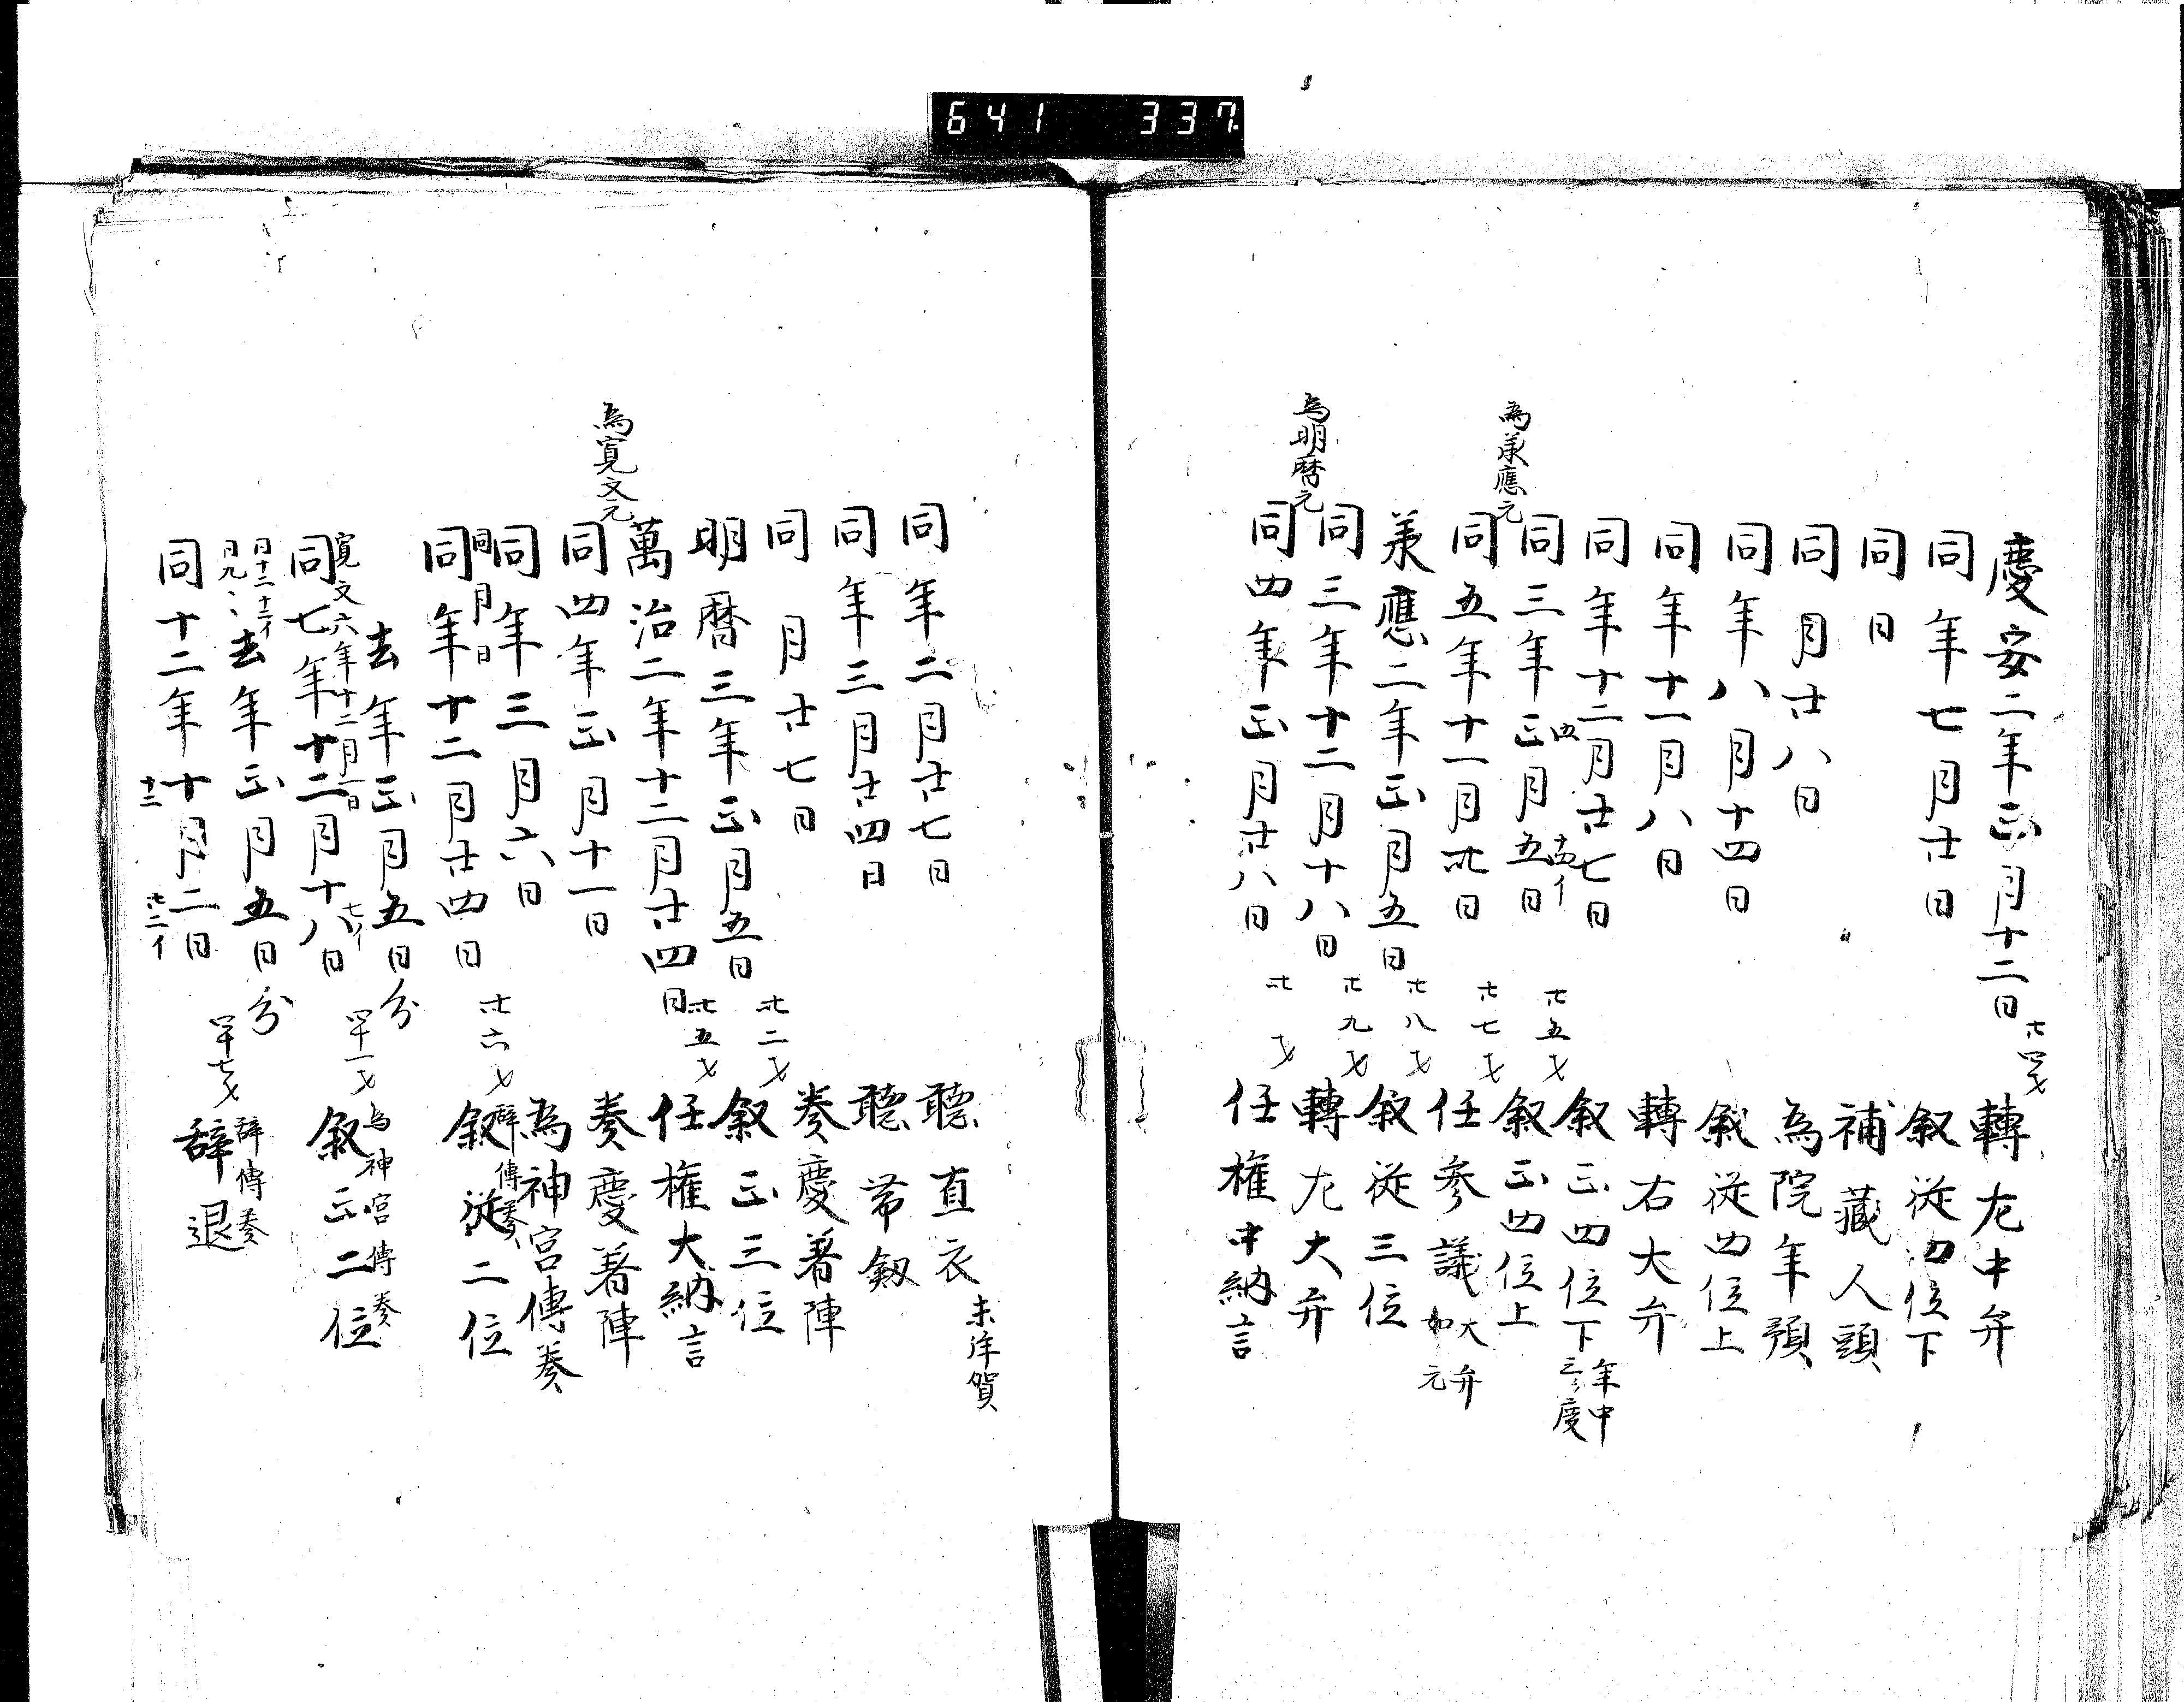 641 337
慶安二年正月十二日 廿四才 轉左中弁
同年七月廿日 叙從四位下
同日 補藏人頭
同月廿八日 為院年預
同年八月十四日 叙從四位上
同年十一月八日 轉右大弁
同年十二月廿七日 叙正四位下 年中三度
同三年正月五日 廿五才 叙正四位上
四
十四イ
為承應元
同五年十一月卅日 廿七才 任參議 大弁如元
承應二年正月五日 廿八才 叙從三位
同三年十二月十八日 廿九才 轉左大弁
為明暦元
同四年正月廿八日 卅才 任權中納言
同年二月廿七日 聽直衣 未拜賀
同年三月廿四日 聽帯釼
同月廿七日 奏慶着陣
明暦三年正月五日 卅二才 叙正三位
萬治二年十二月廿四日 卅五才 任權大納言
為寛文元
同四年正月十一日 奏慶着陣
同年三月六日 為神宮傳奏
同月日 辞傳奏
同年十二月廿四日 卅六才 叙從二位
去年正月五日分
寛文六年十二月一日 為神宮傳奏
同七年十二月十八日 四十一才 叙正二位
七イ
去年正月五日分
日十二十二イ
日九、、 辞傳奏
同十二年十月二日 四十七才 辞退
十二
廿二イ